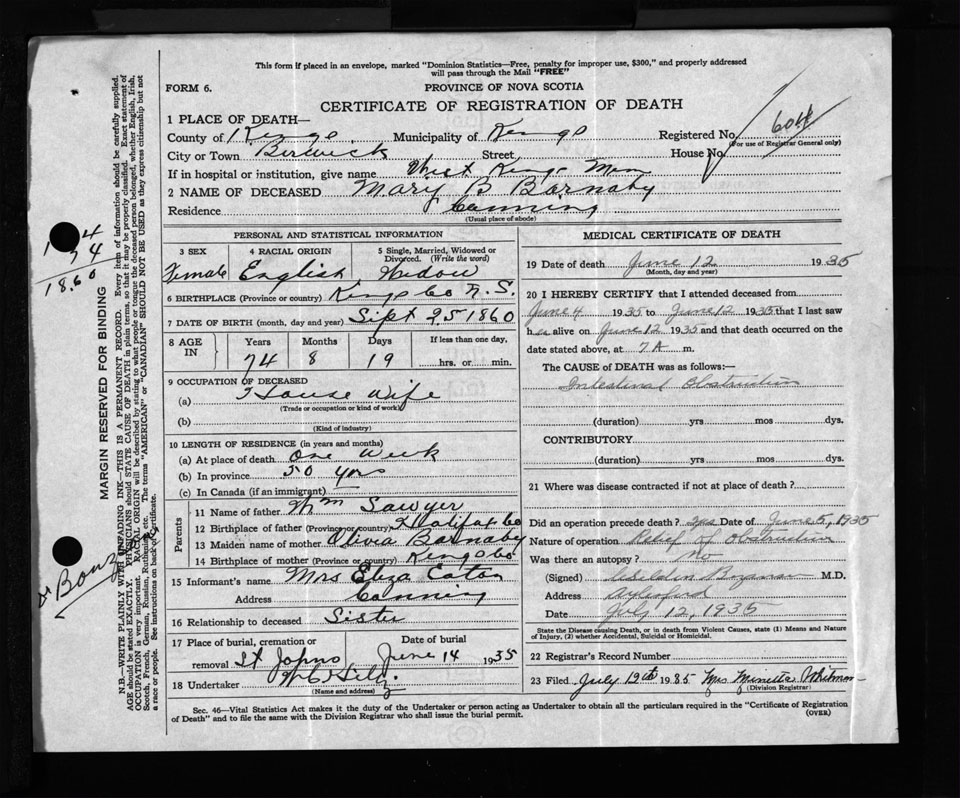 This form if placed in an envelope, marked "Dominion Statistics—Free, penalty for improper use, $300," and properly addressed
will pass through the Mail "FREE"
FORM 6.
PROVINCE OF NOVA SCOTIA
CERTIFICATE OF REGISTRATION OF DEATH
1 PLACE OF DEATH—
County of Kings Municipality of Kings Registered No. 604
(For use of Registrar General only)
City or Town Berwick Street House No.
If in hospital or institution, give name West Kings Mem
2 NAME OF DECEASED Mary B Barnaby
Residence Canning
(Usual place of abode)
PERSONAL AND STATISTICAL INFORMATION
3 SEX Female
4 RACIAL ORIGIN English
5 Single, Married, Widowed or Divorced. (Write the word) Widow
6 BIRTHPLACE (Province or country) Kings Co N.S.
7 DATE OF BIRTH (month, day and year) Sept 25 1860
8 AGE IN Years 74 Months 8 Days 19 If less than one day, hrs. or min.
9 OCCUPATION OF DECEASED
(a) House Wife
(Trade or occupation or kind of work)
(b)
(Kind of industry)
10 LENGTH OF RESIDENCE (in years and months)
(a) At place of death One Week
(b) In province 50 yrs
(c) In Canada (if an immigrant) —
Parents
11 Name of father Wm Sawyer
12 Birthplace of father (Province or country) Halifax Co
13 Maiden name of mother Olivia Barnaby
14 Birthplace of mother (Province or country) Kings Co
15 Informant's name Mrs Eliza Eaton
Address Canning
16 Relationship to deceased Sister
17 Place of burial, cremation or removal St Johns
Date of burial June 14 1935
18 Undertaker
(Name and address)
MEDICAL CERTIFICATE OF DEATH
19 Date of death June 12 1935
(Month, day and year)
20 I HEREBY CERTIFY that I attended deceased from
June 4 1935 to June 12 1935 that I last saw
her alive on June 12 1935 and that death occurred on
date stated above, at 7 A m.
The CAUSE OF DEATH was as follows:—
Intestinal Obstruction
(duration) yrs mos dys.
CONTRIBUTORY
(duration) yrs mos dys.
21 Where was disease contracted if not at place of death?
Did an operation precede death? yes Date of June 5, 1935
Nature of operation Relief of Obstruction
Was there an autopsy? No
(Signed) M.D.
Address Aylesford
Date July 12, 1935
State the Disease causing Death, or in death from Violent Causes, state (1) Means and Nature
of Injury, (2) whether Accidental, Suicidal or Homicidal.
22 Registrar's Record Number
23 Filed July 12th 1935 Mrs
(Division Registrar)
Sec. 46—Vital Statistics Act makes it the duty of the Undertaker or person acting as Undertaker to obtain all the particulars required in the "Certificate of Registration
of Death" and to file the same with the Division Registrar who shall issue the burial permit.
(OVER)
MARGIN RESERVED FOR BINDING
N.B.—WRITE PLAINLY WITH UNFADING INK—THIS IS A PERMANENT RECORD. Every item of information should be carefully supplied.
AGE should be stated EXACTLY. PHYSICIANS should STATE CAUSE OF DEATH in plain terms, so that it may be properly classified. Exact statement of
OCCUPATION is very important. RACIAL ORIGIN will be described by stating to what people or tongue the deceased person belonged, whether English, Irish,
Scotch, French, German, Russian, Ruthenian, etc. The terms "AMERICAN" or "CANADIAN" SHOULD NOT BE USED as they express citizenship but not
a race or people. See instructions on back of certificate.
74
18.60